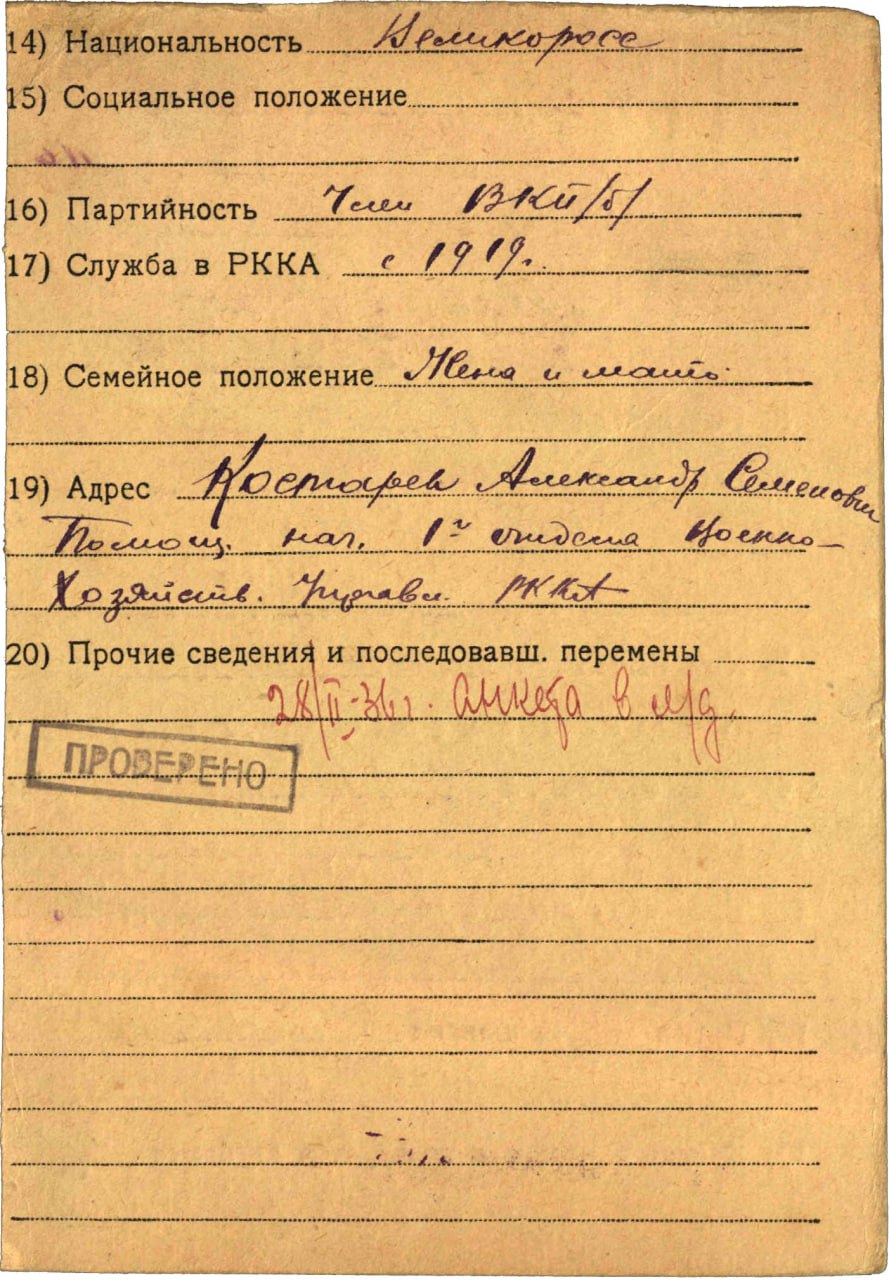 14) Национальность Великоросс
15) Социальное положение
16) Партийность Член ВКП/б/
17) Служба в РККА с 1919 г.
18) Семейное положение Жена и мать.
19) Адрес Костарев Александр Семенович
Помощ. нач. 1го отдела Военно-
Хозяйств. Управл. РККА
20) Прочие сведения и последовавш. перемены
28/II-36 г. Анкета в л/д.
ПРОВЕРЕНО